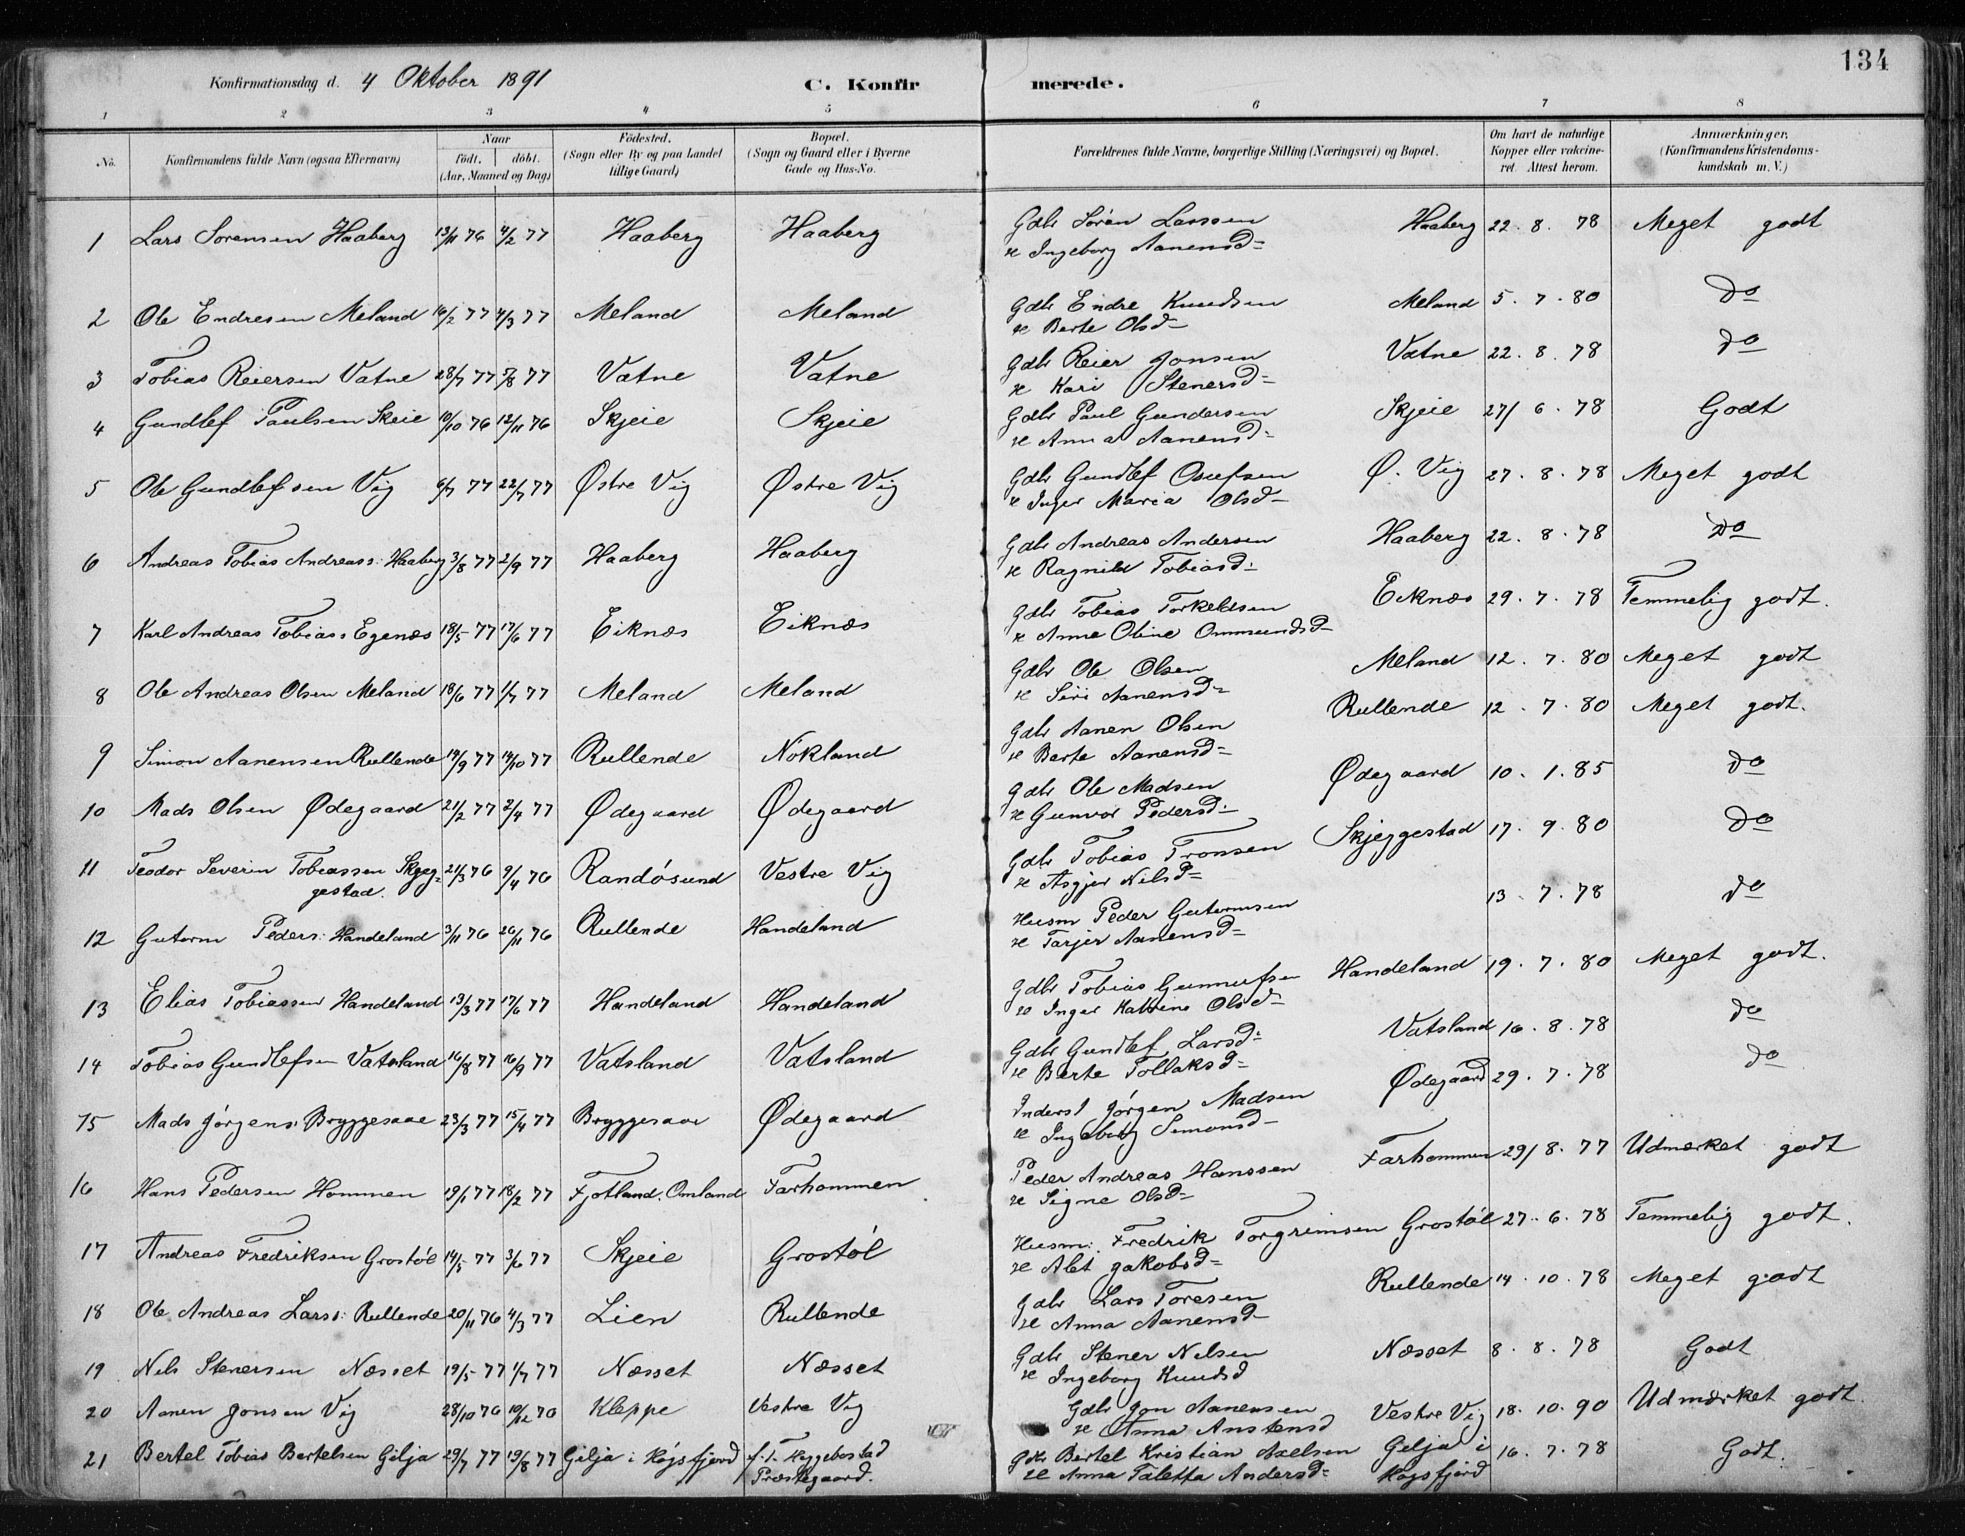 134
Konfirmationsdag d. 4 Oktober 1891 C. Konfirmerede.
1 2 3 4 5 6 7 8
No. Konfirmandens fulde Navn (ogsaa Efternavn) Naar födt. döbt. (Aar, Maaned og Dag) Födested. (Sogn eller By og paa Landet tillige Gaard) Bopæl. (Sogn og Gaard eller i Byerne Gade og Hus-No. Forældrenes fulde Navne, borgerlige Stilling (Næringsvei) og Bopæl. Om havt de naturlige Kopper eller vakcineret Attest herom. Anmærkninger. (Konfirmandens Kristendomskundskab m. V.)
1 Lars Sorensen Haaberg 13/11 76 4/2 77 Haaberg Haaberg Gdbr Sören Larssen Haaberg 22. 8. 78 Meget godt
& Ingeborg Aanensd=
2 Ole Endresen Meland 16/2 77 4/3 77 Meland Meland Gdbr Endre Knudsen Meland 5. 7. 80 Do
& Berte Olsd-
3 Tobias Reiersen Vatne 28/7 77 5/8 77 Vatne Vatne Gdbr Reier Jonsen Vatne 22. 8. 78 Do
& Kari Stenersd=
4 Gundlef Paulsen Skeie 10/10 76 12/11 76 Skjeie Skjeie Gdbr Paul Gundersen Skjeie 27/ 6. 78 Godt
& Anna Aanensd=
5 Ole Gundlefsen Vig 6/7 77 22/7 77 Østre Vig Østre Vig Gdbr Gundlef Osufsen Ø. Vig 27. 8. 78 Meget godt
& Inger Maria Olsd-
6 Andreas Tobias Andreass: Haaberg 3/8 77 2/9 77 Haaberg Haaberg Gdbr Andreas Andersen Haaberg 22. 8. 78 Do
& Ragnild Tobiasd=
7 Karl Andreas Tobias: Egenæs 18/5 77 17/6 77 Eiknæs Eiknæs Gdbr Tobias Torkeldsen Eiknæs 29. 7. 78 Temmelig godt.
& Anne Oline Ommundsd-
8 Ole Andreas Olsen Meland 18/6 77 1/7 77 Meland Meland Gdbr Ole Olsen Meland 12. 7. 80 Meget godt
& Siri Aanensd=
9 Simon Aanensen Rullende 19/9 77 14/10 77 Rullende Nökland Gdbr Aanen Olsen Rullende 12. 7. 80 Meget godt.
& Berte Aanensd=
10 Mads Olsen Ødegaard 21/2 77 2/4 77 Ødegaard Ødegaard Gdbr Ole Madsen Ødegaard 10. 1. 85 Do
& Gunvor Pedersd=
11 Teodor Severin Tobiassen Skjeg= 21/3 76 9/4 76 Randösund Vestre Vig Gdbr Tobias Tronsen Skjeggestad 17. 9. 80 Do
gestad. & Asgjer Nilsd=
12 Gutorm Peders: Handeland 3/11 76 26/11 76 Rullende Handeland Husm Peder Gutormsen 13. 7. 78 Do
& Tarjer Aanensd=
13 Elias Tobiassen Handeland 13/3 77 17/6 77 Handeland Handeland Gdbr Tobias Gunnufsen Handeland 19. 7. 80 Meget godt.
& Inger Katrine Olsd=
14 Tobias Gundlefsen Vatsland 16/8 77 16/9 77 Vatsland Vatsland Gdbr Gundlef Larsd= Vatsland 16. 8. 78 Do
& Berte Tollaksd=
15 Mads Jörgens: Bryggesaae 23/3 77 15/4 77 Bryggesaae Ødegaard Inderst Jörgen Madsen Ødegaard 29. 7. 78 Do
& Ingeborg Simonsd-
16 Hans Pedersen Hommen 19/1 77 18/2 77 Fjotland. Omland Farhommen Peder Andreas Hanssen Farhommen 29/ 8. 77 Udmerket godt
& Signe Olsd=
17 Andreas Fredriksen Grostöl 14/5 77 3/6 77 Skjeie Grostöl Husm: Fredrik Torgrimsen Grostöl 27. 6. 78 Temmelig godt.
& Alet Jakobsd=
18 Ole Andreas Larss: Rullende 20/11 76 4/3 77 Lien Rullende Gdbr Lars Toresen Rullende 14. 10. 78 Meget godt
& Anna Aanensd
19 Nils Stenersen Næsset 19/5 77 1/7 77 Næsset Næsset Gdbr Stener Nilsen Næsset 8. 8. 78 Godt
& Ingeborg Knudsd
20 Aanen Jonsen Vig 28/10 76 10/12 76 Kleppe Vestre Vig Gdbr Jon Aanensen Vestre Vig 18. 10. 90 Udmærket godt.
& Anna Anstensd
21 Bertel Tobias Bertelsen Gilja 29/7 77 19/8 77 Gilja i Högsfjord f.t. Heggebostad Gdr Bertel Kristian Axelsen Gilja i 16. 7. 78 Godt.
Præstegaard. & Anna Taletta Andersd= Högsfjord